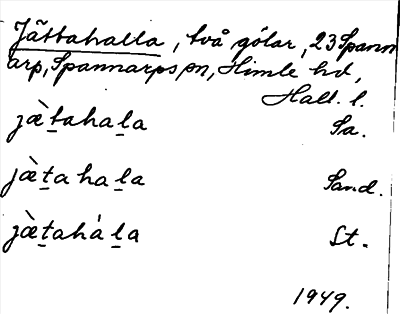 Jättahalla, två gölar, 23 Spann
arp, Spannarps sn, Himle hd,
Hall. l.
jæ̀ṯahaḻa Sa.
jæ̀ṯahaḻa Sand.
jæ̀ṯahàḻa St.
1949.